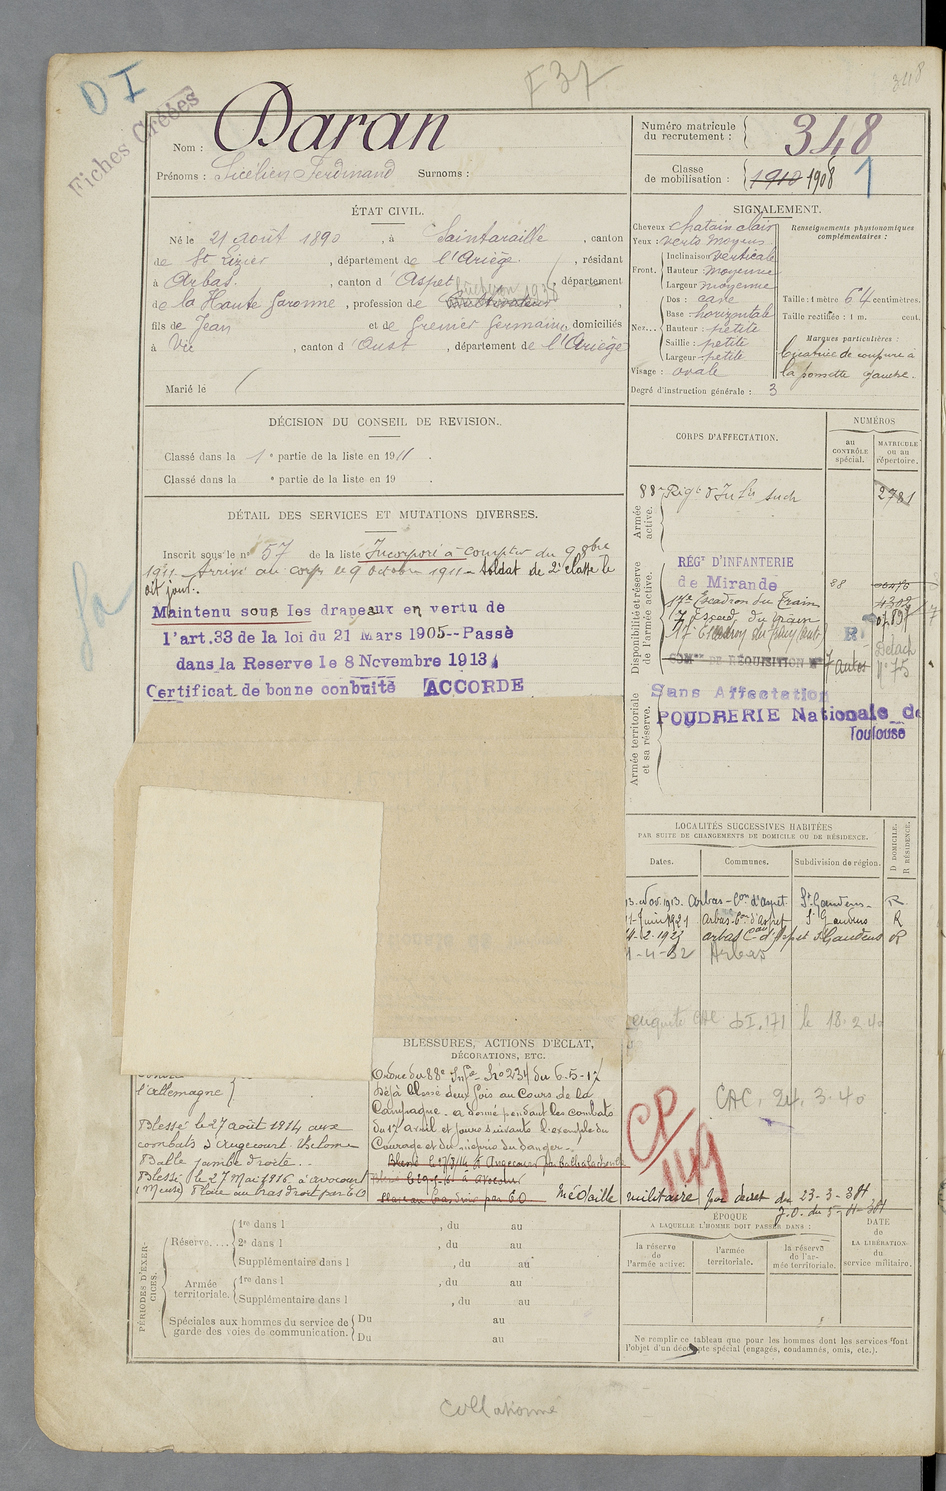 D I
F 37
348
Fiches Créées
Nom : Daran
Prénoms : Lucien Ferdinand Surnoms :
Numéro matricule du recrutement : 348
Classe de mobilisation : 1910 1908 1
ÉTAT CIVIL.
Né le 21 août 1890, à Saintaraille, canton
de St Lizier, département de l'Ariège, résidant
à Arbas, canton d'Aspet, département
de la Haute Garonne, profession de cultivateur
fils de Jean et de Grenier Germaine, domiciliés
à Vic, canton d'Oust, département de l'Ariège
Marié le
SIGNALEMENT.
Cheveux chatain clair
Yeux : verts moyens
Front. Inclinaison verticale
Hauteur : moyenne
Largeur moyenne
Nez... Dos : cave
Base horizontale
Hauteur : petite
Saillie : petite
Largeur petite
Visage : ovale
Degré d'instruction générale : 3
Renseignements physionomiques
complémentaires :
Taille : 1 mètre 64 centimètres.
Taille rectifiée : 1 m. cent.
Marques particulières :
Cicatrice de coupure à
la pomette gauche.
DÉCISION DU CONSEIL DE REVISION.
Classé dans la 1e partie de la liste en 1911.
Classé dans la e partie de la liste en 19 .
DÉTAIL DES SERVICES ET MUTATIONS DIVERSES.
Inscrit sous le n° 57 de la liste Incorporé à compter du 9 8bre
1911. Arrivé au corps le 9 octobre 1911. Soldat de 2e classe le
dit jour.
Maintenu sous les drapeaux en vertu de
l'art.33 de la loi du 21 Mars 1905--Passé
dans la Reserve le 8 Novembre 1913
Certificat de bonne conduite ACCORDE
CORPS D'AFFECTATION.
NUMÉROS
au CONTRÔLE spécial.
MATRICULE ou au répertoire.
Armée active.
88e Régt d'Infie Auch 2781
Disponibilité et réserve de l'armée active.
RÉGt D'INFANTERIE
de Mirande 88
17e Escadron du Train
17 Escad. du train
COMon DE RÉQUISITION
Détach
N° 75
Armée territoriale et sa réserve.
Sans Affectation
POUDRERIE Nationale de
Toulouse
LOCALITÉS SUCCESSIVES HABITÉES
PAR SUITE DE CHANGEMENTS DE DOMICILE OU DE RÉSIDENCE.
Dates. Communes. Subdivision de région. D DOMICILE. R RÉSIDENCE.
13. Nov. 1913. Arbas - Con d'Aspet. St Gaudens - R
Juin 1921 Arbas Con d'Aspet St Gaudens R
2-1923 Arbas Con d'Aspet St Gaudens R
1-4-32 Arbas
enquête CAC DI.171 le 18.2.40
CAC. 24.3.40
CP
1149
BLESSURES, ACTIONS D'ÉCLAT,
DÉCORATIONS, ETC.
l'Allemagne
Blessé le 27 août 1914 aux
combats d'Angecourt
Balle jambe droite.
Blessé le 27 Mai 1916 à Avocourt
(Meuse) Plaie au bras droit par EO
Ordre du 88e Infie No 234 du 6-5-17
Déjà blessé deux fois au cours de la
Campagne - a donné pendant les combats
du 17 avril et jours suivants l'exemple du
Courage et du mépris du danger.
Médaille militaire par décret du 23-3-38
PÉRIODES D'EXERCICES.
Réserve.... 1re dans l , du au
2e dans l , du au
Supplémentaire dans l , du au
Armée territoriale. 1re dans l , du au
Supplémentaire dans l , du au
Spéciales aux hommes du service de garde des voies de communication. Du au
Du au
ÉPOQUE
A LAQUELLE L'HOMME DOIT PASSER DANS :
la réserve de l'armée active.
l'armée territoriale.
la réserve de l'armée territoriale.
DATE DE LA LIBÉRATION du service militaire.
Ne remplir ce tableau que pour les hommes dont les services font
l'objet d'un décompte spécial (engagés, condamnés, omis, etc.).
Collationné